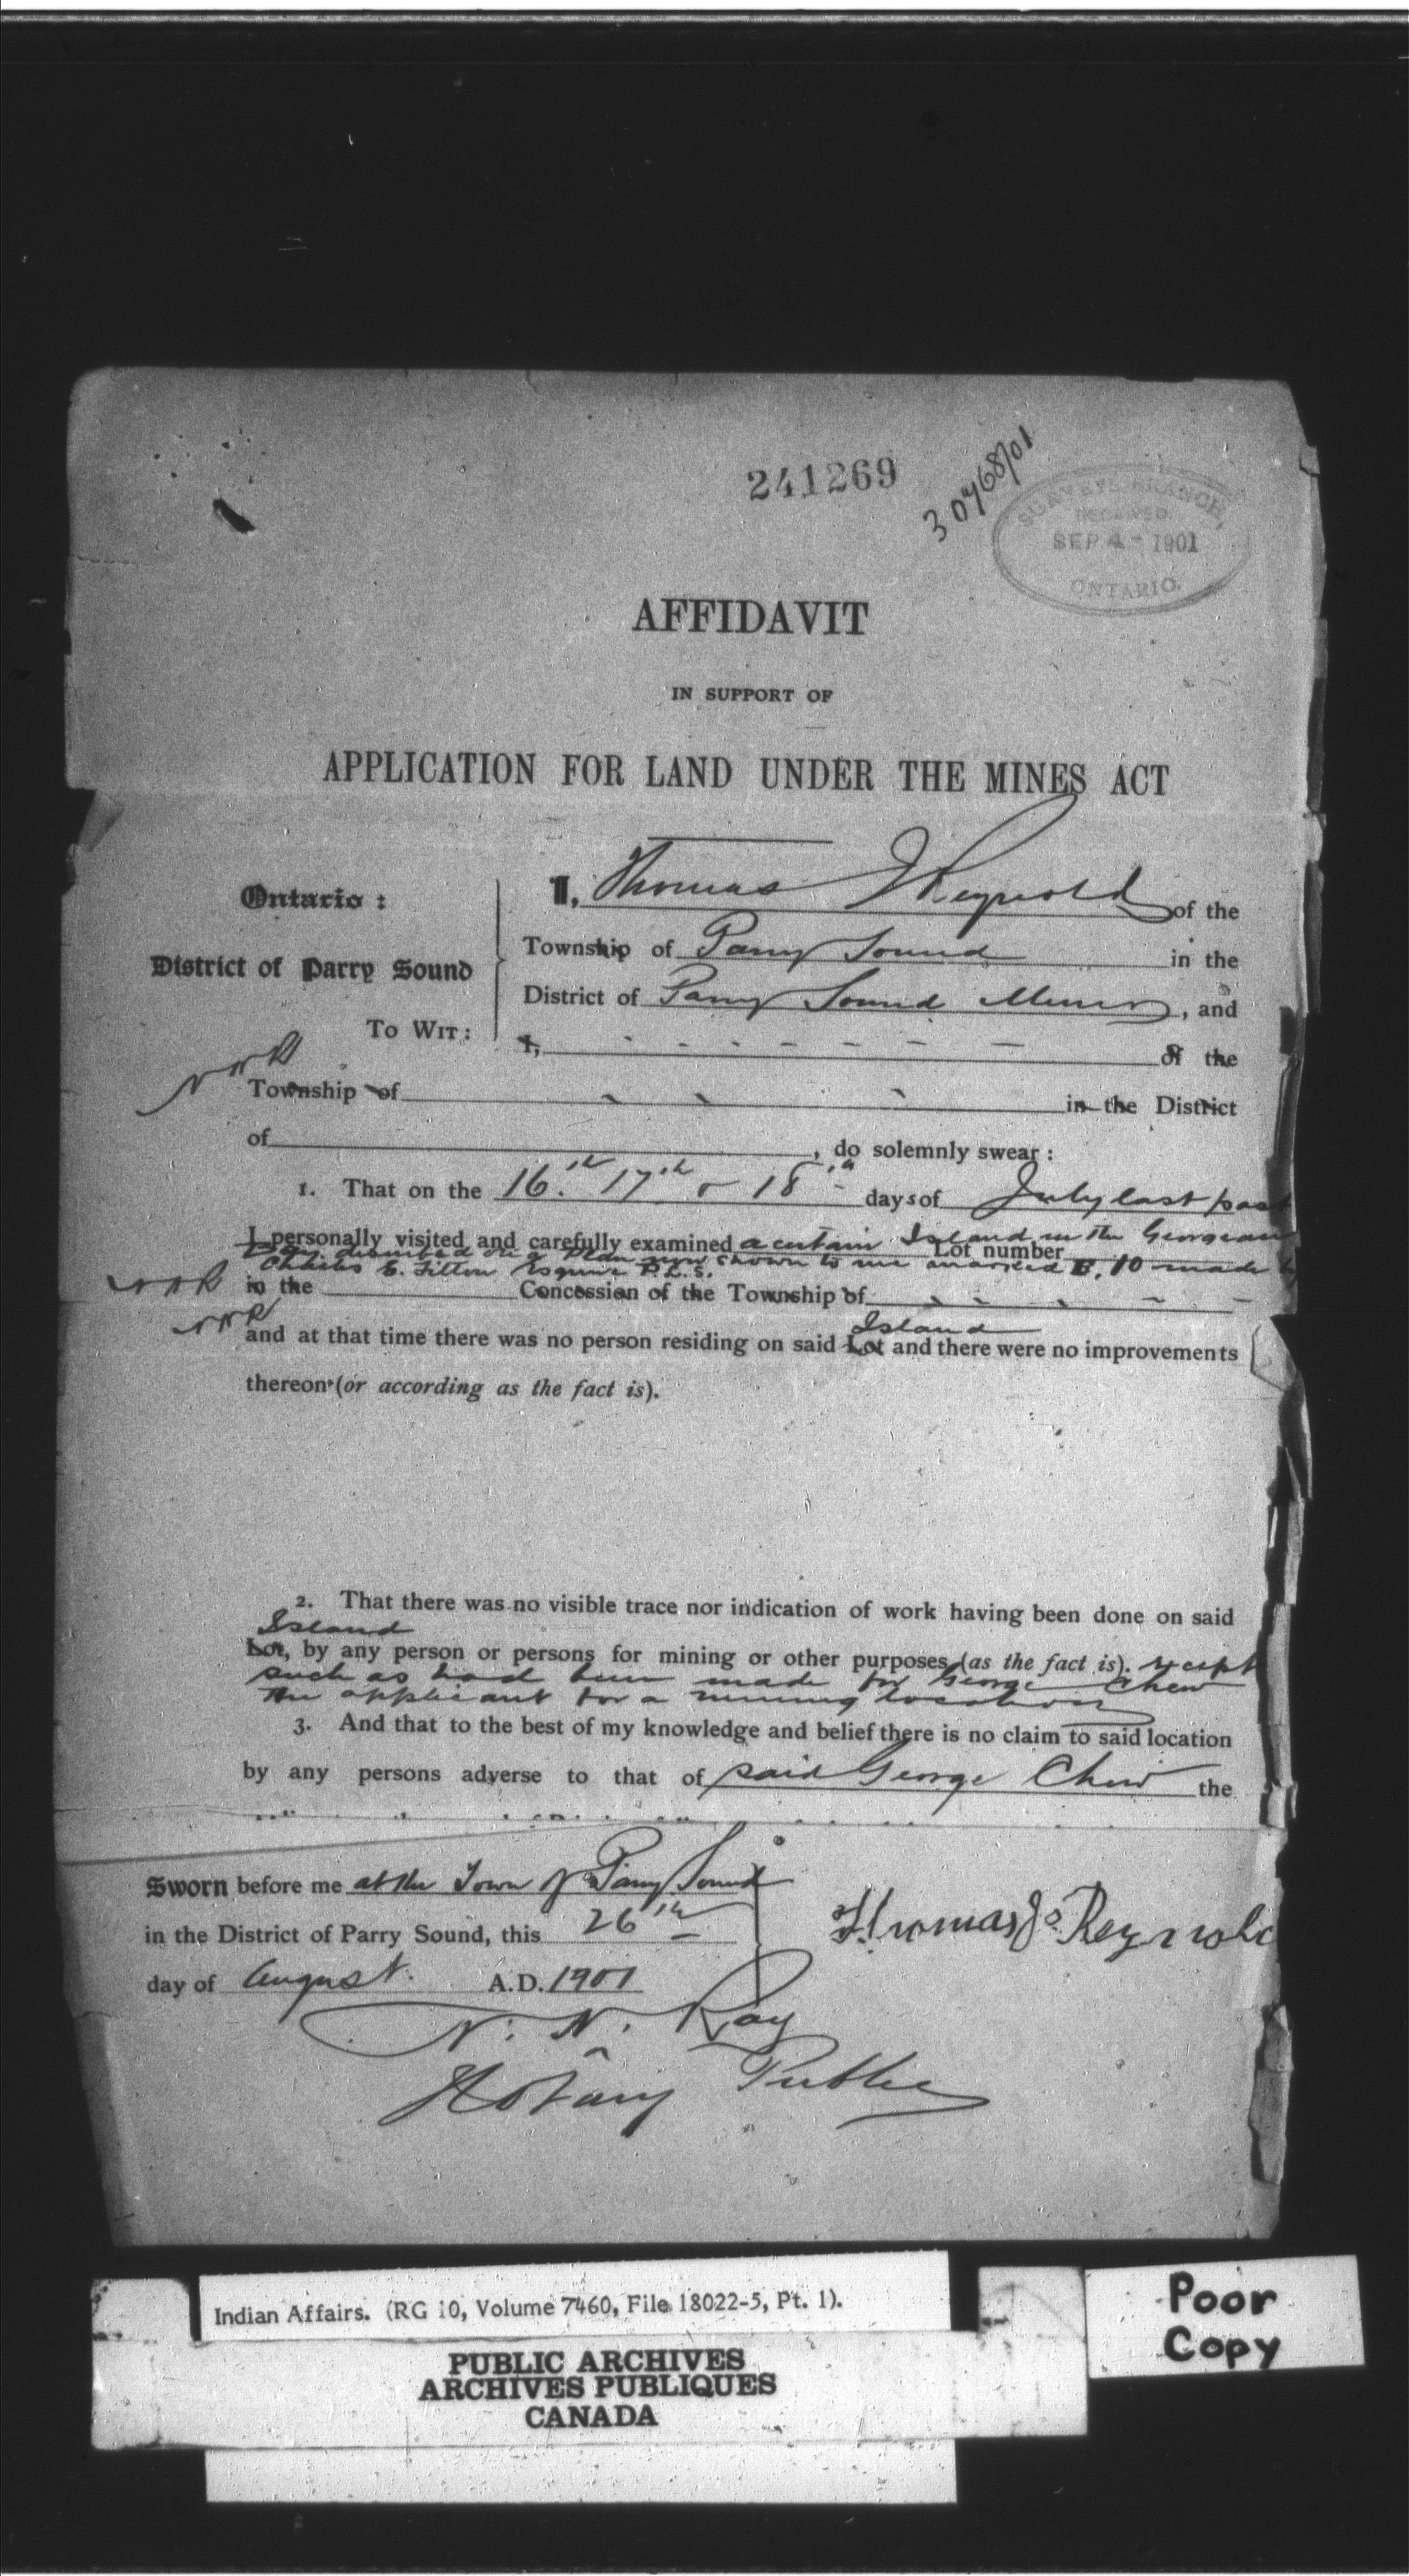 241269
30768/01
SURVEYS BRANCH,
RECEIVED
SEP 4 - 1901
ONTARIO.
AFFIDAVIT
IN SUPPORT OF
APPLICATION FOR LAND UNDER THE MINES ACT
Ontario :
District of Parry Sound
To Wit :
I, Thomas J Reynold of the
Township of Parry Sound in the
District of Parry Sound Miner, and
I, of the
Township of in the District
of , do solemnly swear :
1. That on the 16th 17th & 18th days of July last past
I personally visited and carefully examined a certain Island in the Georgian
Lot number
Bay described on a Plan now shown to me marked E. 10 made by
Charles E. Fitton Esquire P.L.S.
in the Concession of the Township of
and at that time there was no person residing on said Lot Island and there were no improvements
thereon (or according as the fact is).
2. That there was no visible trace nor indication of work having been done on said
Island
Lot, by any person or persons for mining or other purposes (as the fact is). except
such as had been made for George Chew
the applicant for a mining location
3. And that to the best of my knowledge and belief there is no claim to said location
by any persons adverse to that of said George Chew the
Sworn before me at the Town of Parry Sound
in the District of Parry Sound, this 26th
day of August A.D. 1901
Thomas J. Reynold
N. N. Ray
Notary Public
Indian Affairs. (RG 10, Volume 7460, File 18022-5, Pt. 1).
PUBLIC ARCHIVES
ARCHIVES PUBLIQUES
CANADA
Poor
Copy